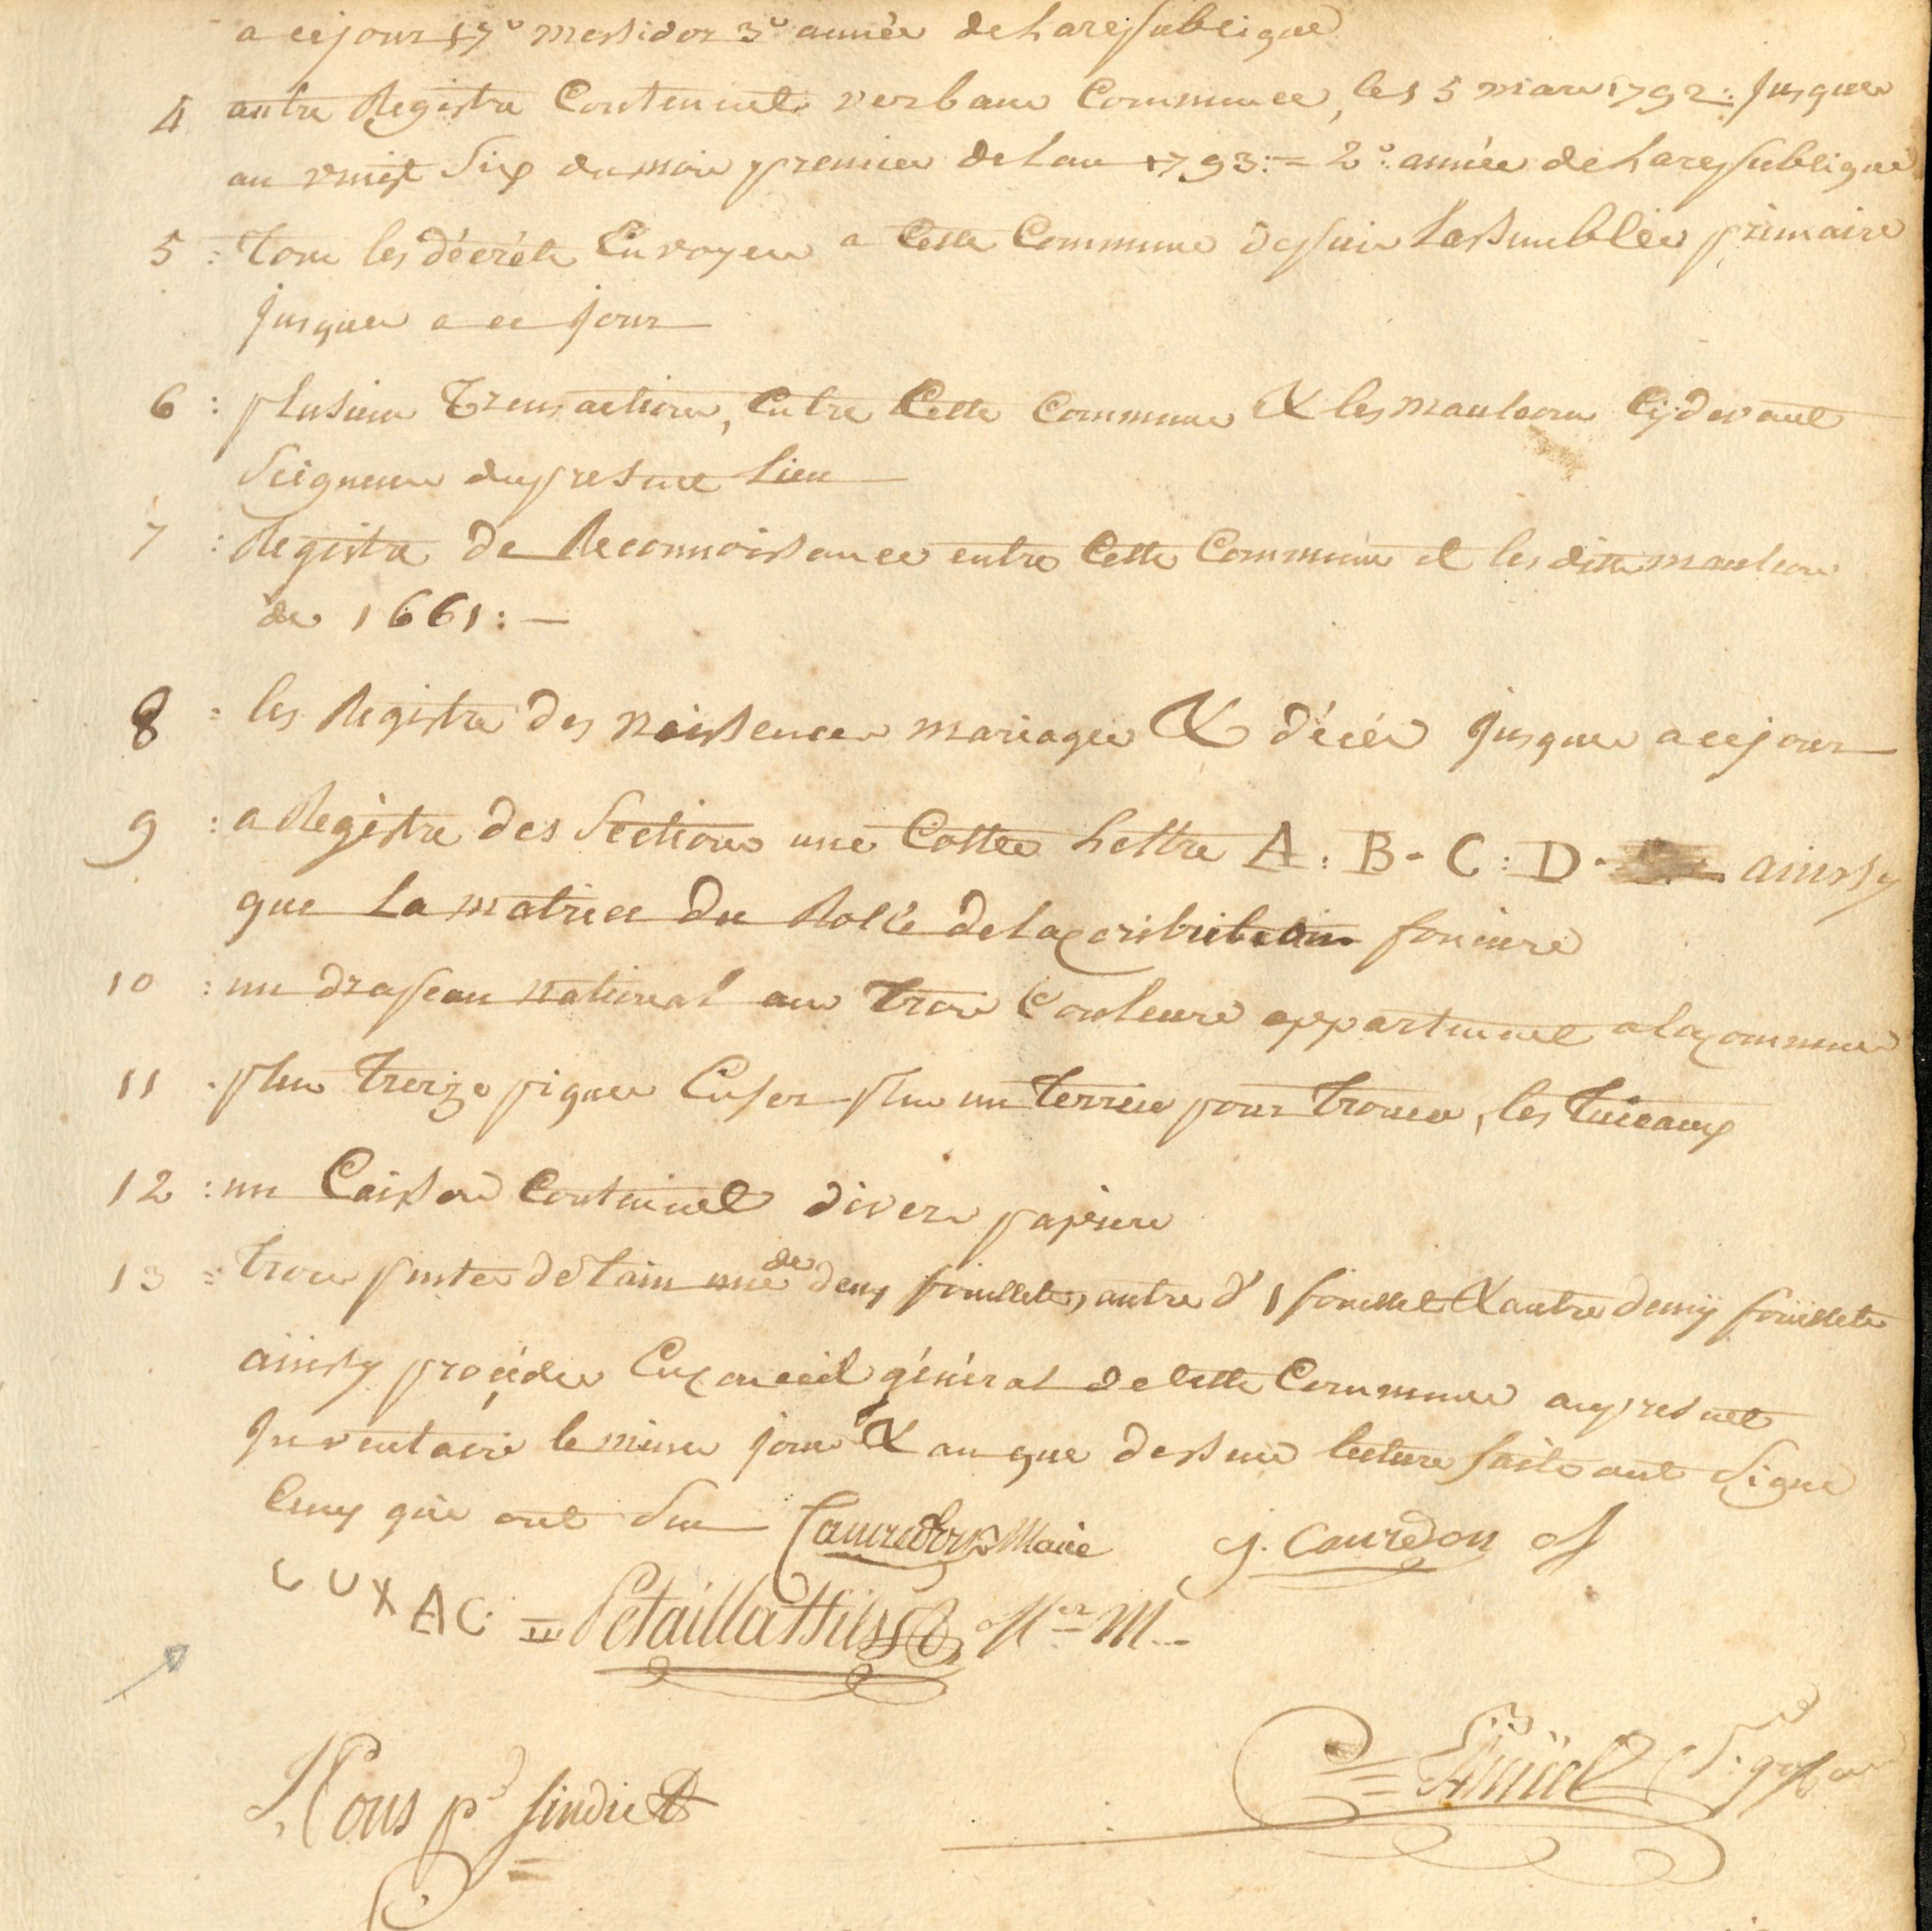 a ce jour 17e messidor 3e année de La republique
4 autre Registre Contenent verbaux Commencé, les 5 mars 1792: jusques
au vingt Six du mois premier de Lan 1793:= 2e: année de La republique
5 : tous les décréts Envoyes a Cette Commune depuis Lassemblée primaire
jusques a ce jour
6 : plusieurs Transactions, Entre Cette Commune & les Cydevant
Seigneurs du presant Lieu
7 : Registre de Reconnoissance entre Cette Commune et les dits
de 1661: —
8 = les Registre des Naissences mariages & décés jusques a ce jour
9 : a Registre des Sections une Cottée Lettre A : B - C : D - ainssy
que La matrice du Rolle de La contribution fonciere
10 : un drapeau National aux Trois Couleurs appartenent a la Commune
11 . plus treize piques En fer plus un Terrier pour Trouer, les Tuieaux
12 : un Caisson Contenent divers papiers
13 = trois pintes de tain une de deux fouilletes, autre d' 1 fouillet & autre demÿ fouillete
ainsy procédé En Conceil général de Cette Commune au presnet
Inventaire le meme jour & an que dessus lecture faite ont Signé
Ceux qui ont Su Couredon Maire J. Couredon of
CUXAC = Petaillat fils of er M...
Nous pr sindict